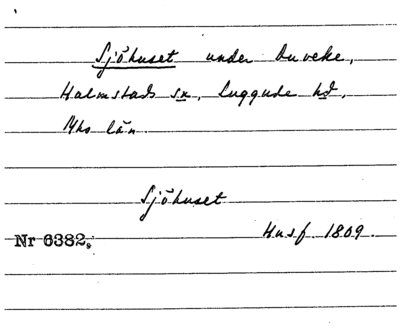 Sjöhuset under Duveke,
Halmstads sn, Luggude hd,
Mhs län.
Sjöhuset
Husf 1809.
Nr 6382.